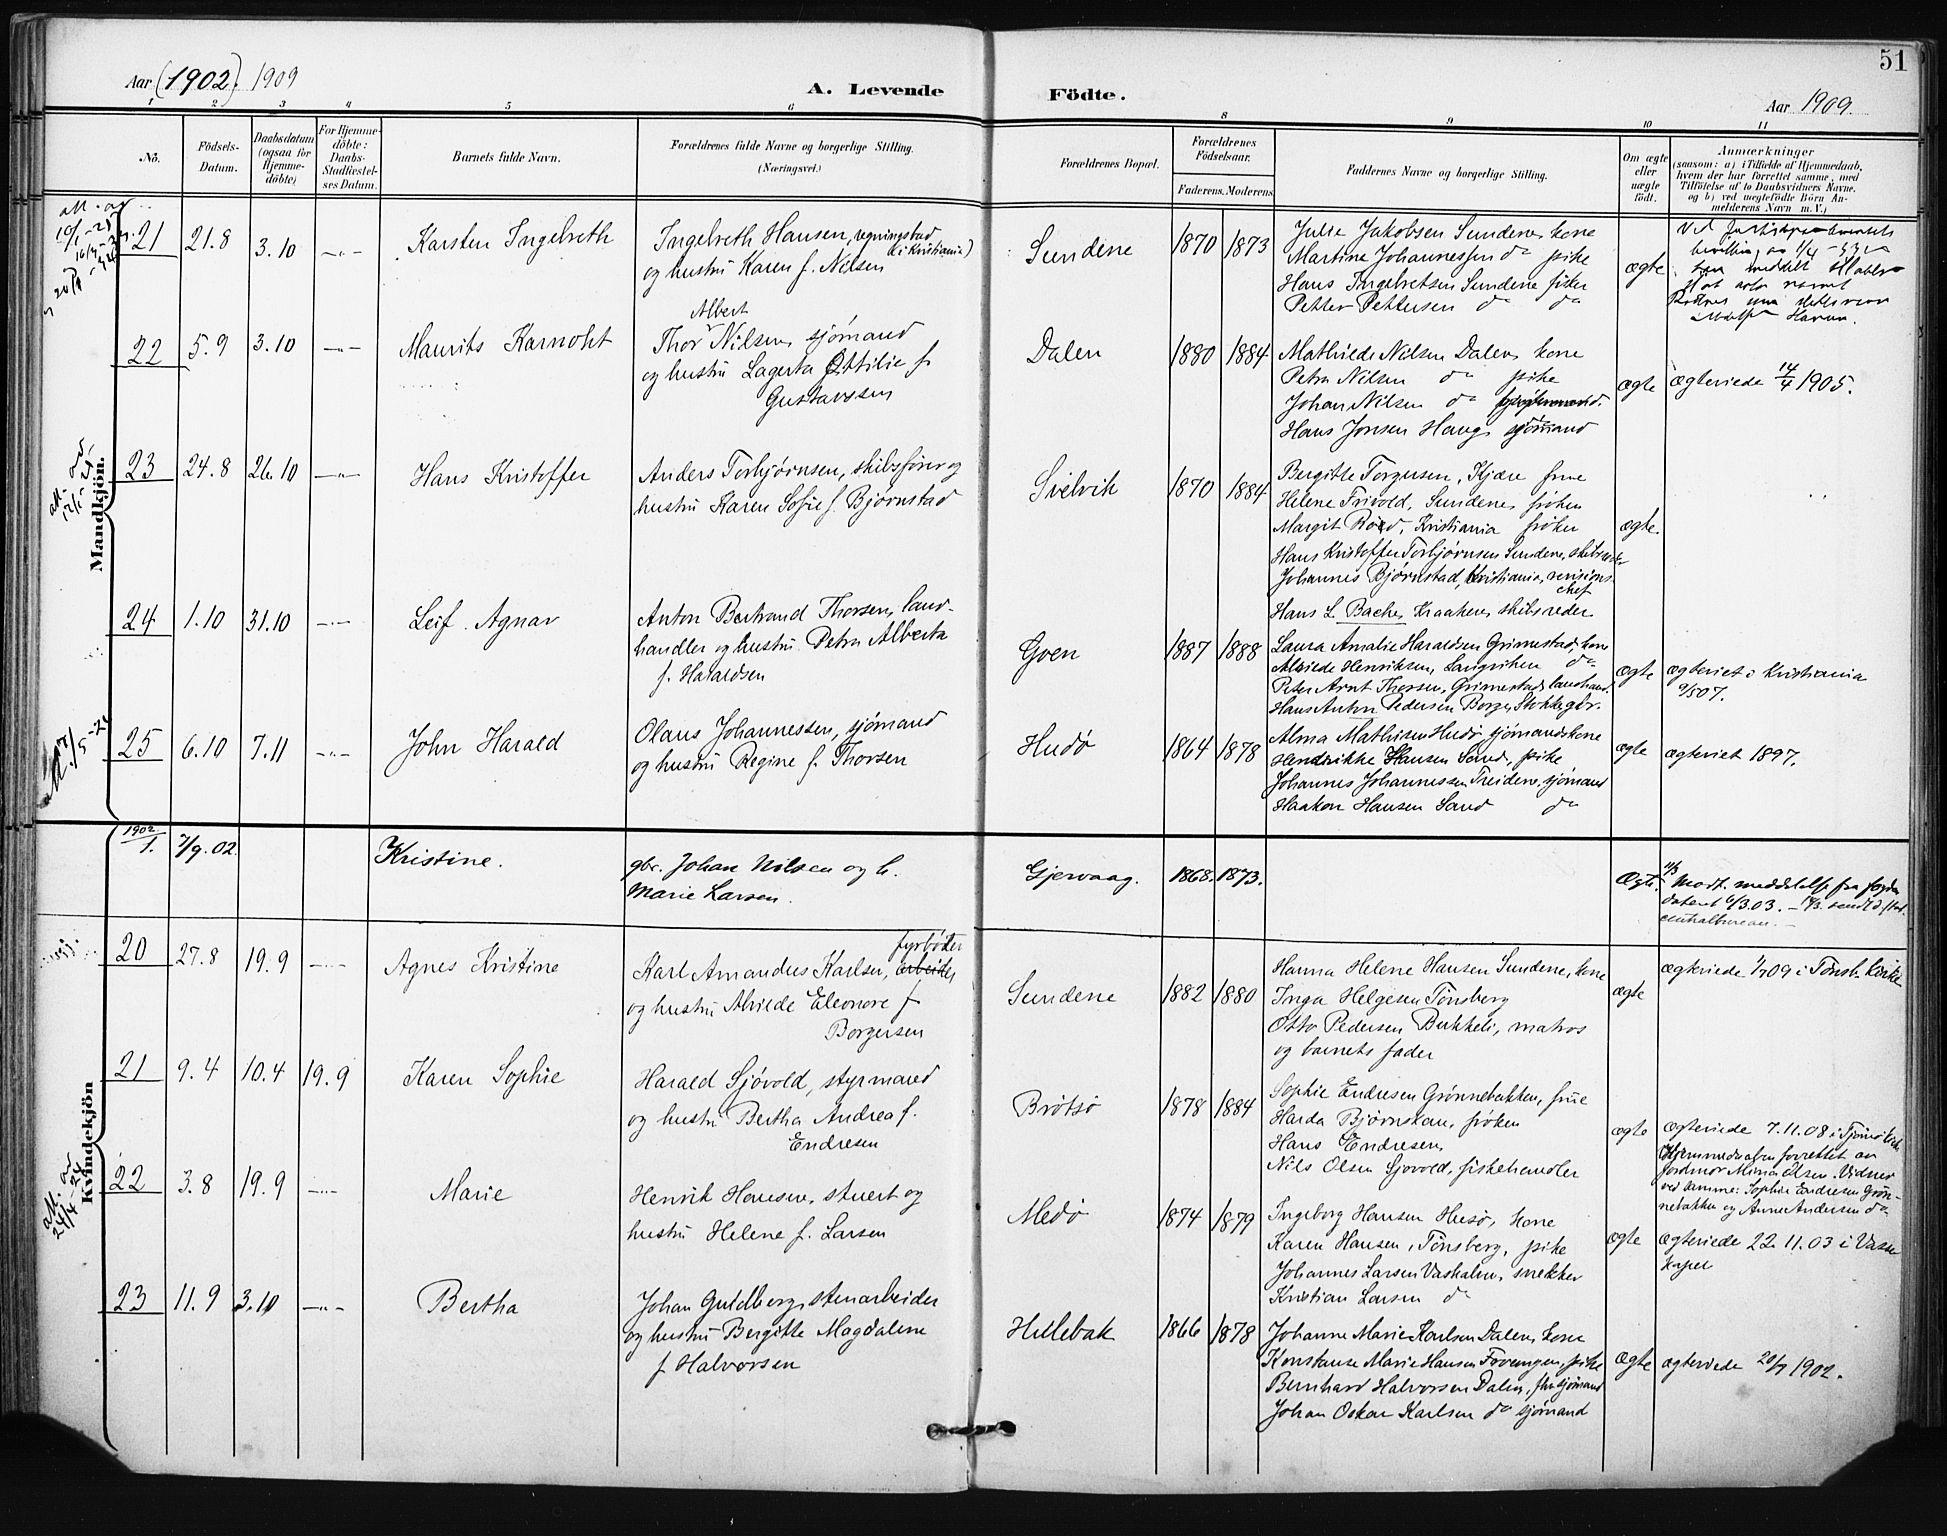 51
Aar (1902). 1909
A. Levende Födte.
Aar 1909.
1 2 3 4 5 6 8 9 10 11
No.
Födsels-Datum.
Daabsdatum (ogsaa for Hjemme-döbte)
For Hjemme-döbte: Daabs-Stadfæstel-ses Datum.
Barnets fulde Navn.
Forældrenes fulde Navne og borgerlige Stilling.
(Næringsvei.)
Forældrenes Bopæl.
Forældrenes Födselsaar.
Faderens. Moderens.
Faddernes Navne og borgerlige Stilling.
Om ægte eller uægte födt.
Anmærkninger
(saasom: a) i Tilfælde af Hjemmedaab,
hvem der har forrettet samme, med
Tilföielse af to Daabsvidners Navne.
og b) ved uægtefödte Börn An-
melderens Navn m. V.)
Mandkjön.
21 21.8 3.10 -"- Karsten Ingelreth
Ingelreth Hansen,
og hustru Karen f. Nilsen
Sundene 1870 1873
Julie Jakobsen Sundene, kone
Martine Johannessen do pike
Hans Ingelretsen Sundene fisker
Petter Pettersen do do
ægte
22 5.9 3.10 -"- Maurits Karnoht
Albert
Thor Nilsen, sjømand
og hustru Lagerta Ottilie f.
Gustavssen
Dalen 1880 1884
Mathilde Nilsen Dalen, kone
Petra Nilsen do pike
Johan Nilsen do
Hans Jonsen Haug, sjømand
ægte
ægteviede 14/4 1905.
23 24.8 26.10 -"- Hans Kristoffer
Anders Torbjørnsen, skibsfører og
hustru Karen Sofie f. Bjørnstad
Svelvik 1870 1884
Bergitte Torgersen, Kjære frue
Helene Trivold, Sundene, frøken
Margit Roed, Kristiania frøken
Hans Kristoffer Torbjørnsen Sundene, skibsreder
Johannes Bjørnstad, Kristiania, revisions-
chef
Hans L. Bache, Kraakere, skibsreder
ægte.
24 1.10 31.10 -"- Leif Agnar
Anton Bertrand Thorsen, land-
handler og hustru Petra Alberta
f. Haraldsen
Goen 1887 1888
Laura Amalie Haraldsen Grimestad, kone
Alvilde Henriksen, Langviken do
Peter Arnt Thorsen, Grimestad, landhand.
Hans Anton Pedersen Borge, Stokke gbr.
ægte
ægteviet i Kristiania
9/5 07.
25 6.10 7.11 -"- John Harald
Olaus Johannessen, sjømand
og hustru Regine f. Thorsen
Hudø 1864 1878
Alma Mathisen Hudø sjømandskone
Hendrikke Hansen Sand, pike
Johannes Johannessen Treidene, sjømand
Haakon Hansen Sand do
ægte
ægteviet 1897.
1902/1. 7/9.02. Kristine.
gbr. Johan Nilsen og h.
Marie Larsen.
Gjervaag. 1868. 1873.
Ægte.
11/3 Modt. meddelelse fra
dateret 6/3.03.
centralbureau.
Kvindekjön
20 27.8 19.9 -"- Agnes Kristine
fyrbøter
Karl Amandus Karlsen, arbeider
og hustru Alvilde Eleonore f.
Borgersen
Sundene 1882 1880
Hanna Helene Hansen Sundene, kone
Inga Helgesen Tønsberg
Otto Pedersen Bukkeli, matros
og barnets fader
ægte
ægteviede 1/7 09 i Tønsb. kirke
21 9.4 10.4 19.9 Karen Sophie
Harald Sjøvold, styrmand
og hustru Bertha Andrea f.
Endresen
Brøtsø 1878 1884
Sophie Endresen Grønnebakken, frue
Harda Bjørnskau, frøken
Hans Endresen,
Nils Olsen Sjøvold, fiskehandler
ægte
ægteviede 7.11.08 i Tjømø kirke
Hjemmedaaben forrettet av
Jordmor Mina Olsen. Vidner
ved samme: Sophie Endresen Grøn-
nebakken og Anne Andersen do
22 3.8 19.9 -"- Marie
Henrik Hansen, stuert og
hustru Helene f. Larsen
Medø 1874 1879
Ingeborg Hansen Husø, kone
Karen Hansen, Tønsberg, pike
Johannes Larsen Vaskalven, snekker
Kristian Larsen do
ægte
ægteviede 22.11.03 i Vasse
kapel
23 11.9 3.10 -"- Bertha
Johan Guldberg, stenarbeider
og hustru Bergitte Magdalene
f. Halvorsen
Hellebak 1866 1878
Johanne Marie Karlsen Dalen, kone
Konstanse Marie Hansen, pike
Bernhard Halvorsen Dalen, sjømand
Johan Oskar Karlsen do sjømand
ægte
ægteviede 20/7 1902.